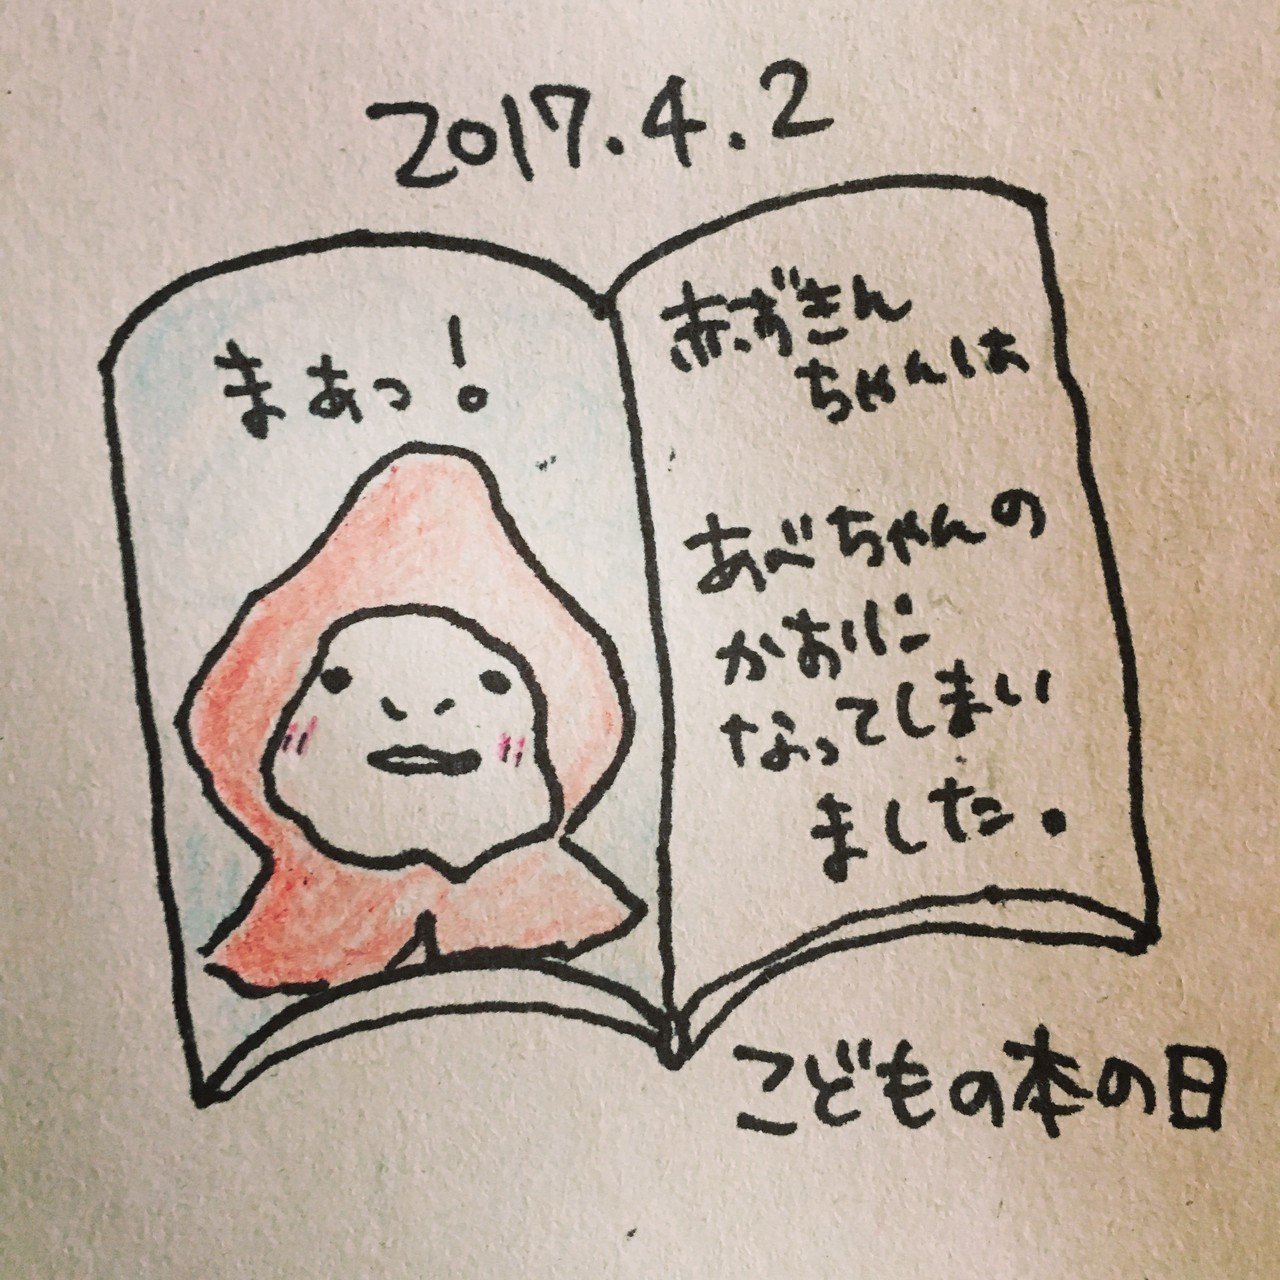 2017.4.2
まぁっ!
赤ずきん
ちゃんは
あべちゃんの
かおに
なってしまい
ました。
こどもの本の日